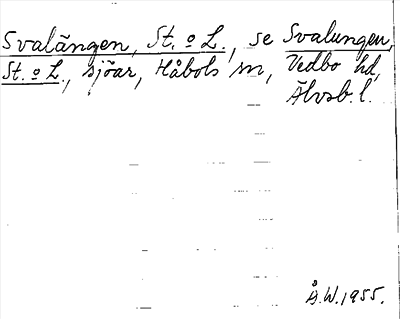 Svalängen, St. o L., se Svalungen,
St. o L., sjöar, Håbols sn, Vedbo hd,
Älvsb. l.
Å.W. 1955.